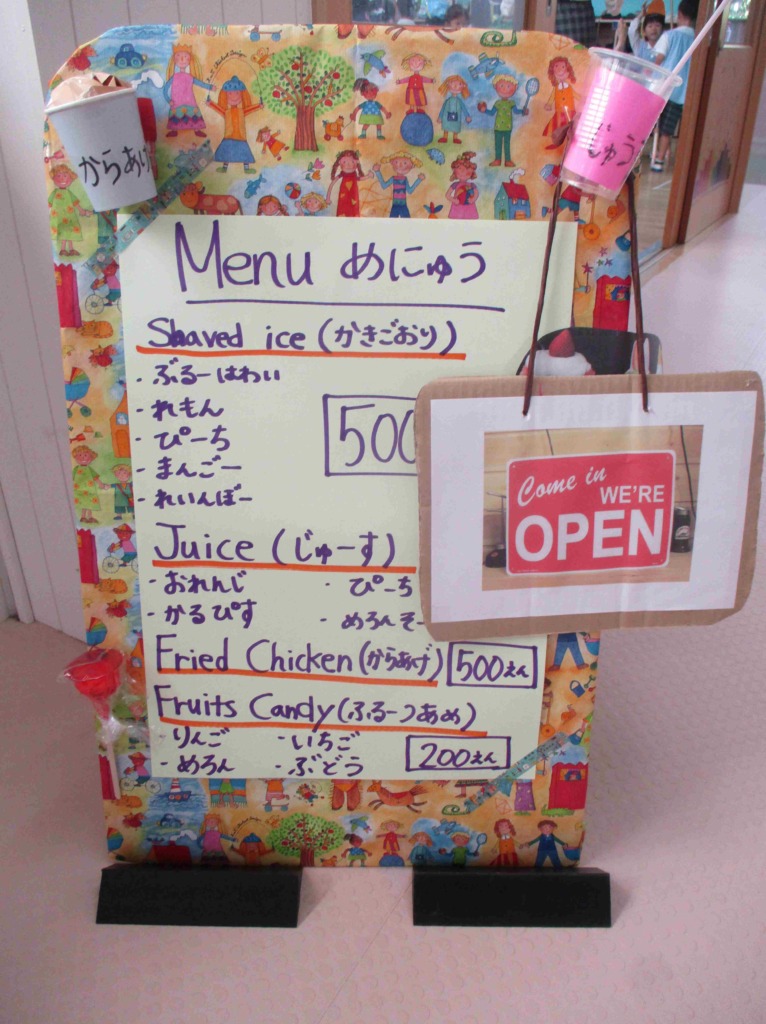 からあげ
じゅう
Menu めにゅう
Shaved ice (かきごおり)
・ぶるーはわい
・れもん
・ぴーち
・まんごー
・れいんぼー
500
Come in
WE'RE
OPEN
Juice (じゅーす)
・おれんじ ・ぴーち
・かるぴす ・めろんそー
Fried Chicken (からあげ) 500えん
Fruits Candy (ふるーつあめ)
・りんご ・いちご
・めろん ・ぶどう
200えん